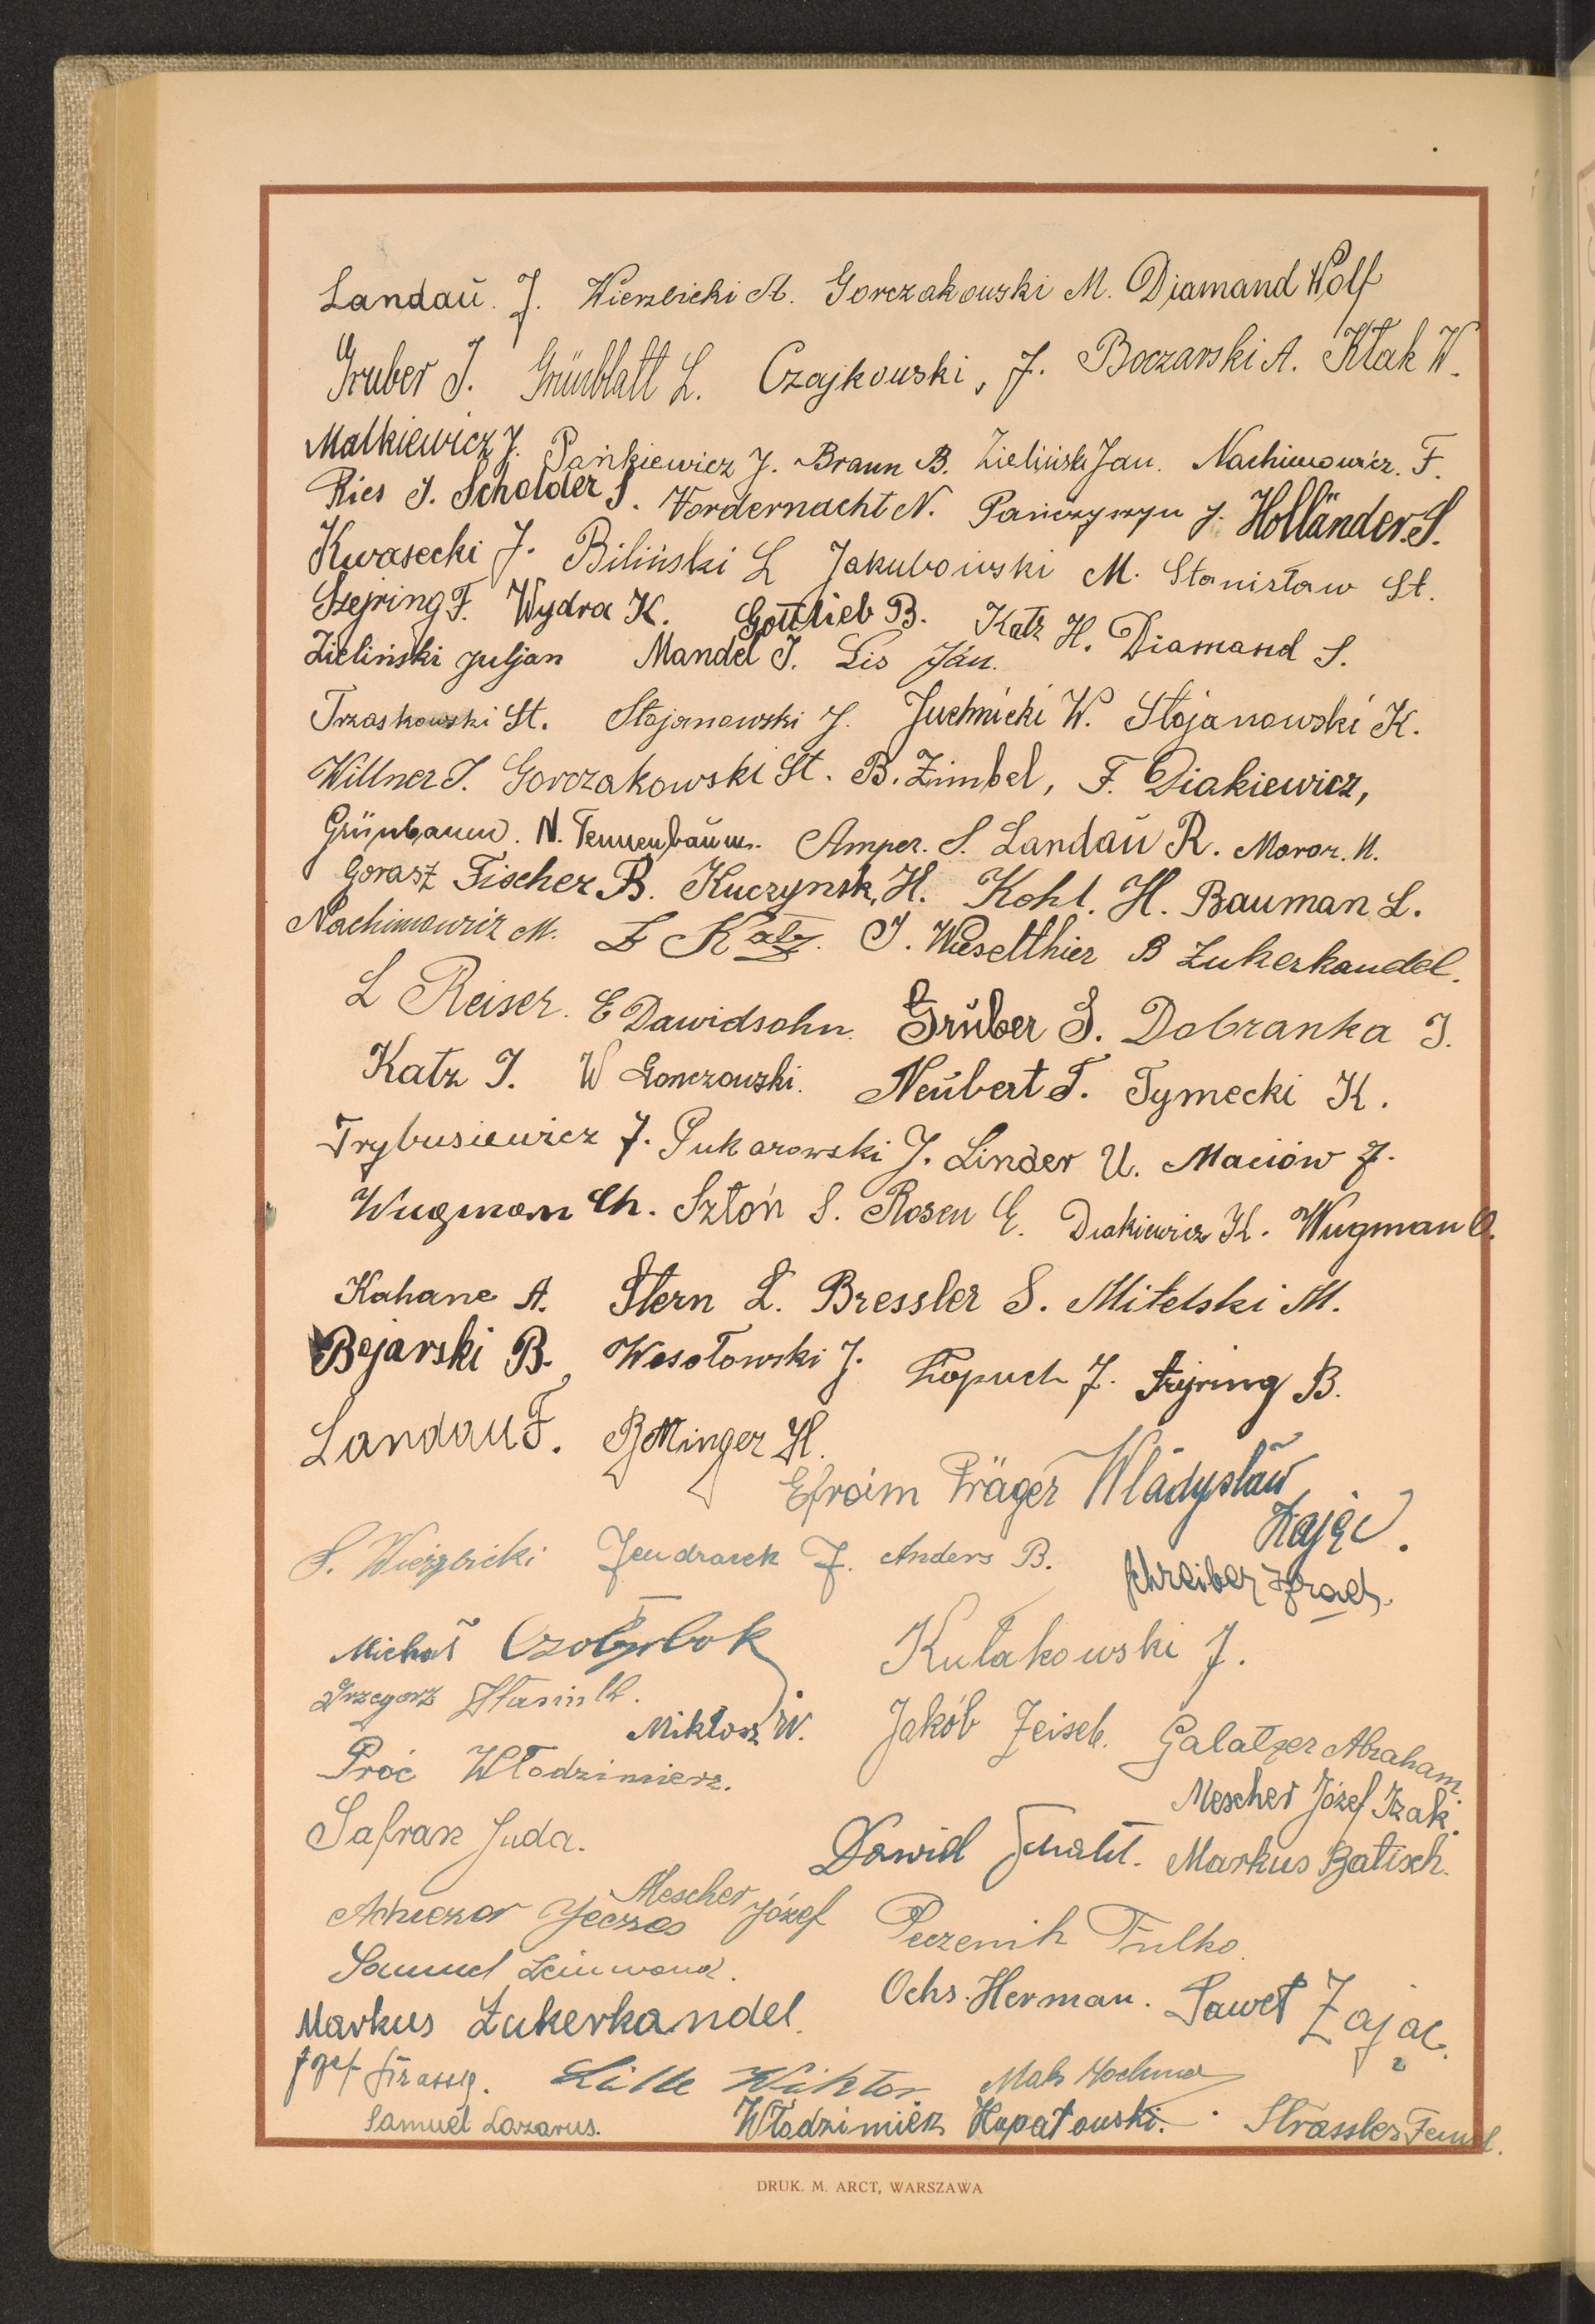 Landaŭ. J. Wierzbicki A. Gorczakowski M. Diamand Wolf
Gruber J. Grünblatt L. Czajkowski, J. Boczarski A. Kłak W.
Malkiewicz J. Pańkiewicz J. Braun B. Zieliński Jan. Nachimowicz. F.
Ries J. Scholder S. Vordernacht N. Pańczyszyn J. Holländer. S.
Kwasecki J. Biliński L Jakubowski M. Stanisław St.
Szejring F. Wydra K. Gottlieb B. Katz H. Diamand S.
Zieliński Juljan Mandel J. Lis Jan.
Trzaskowski St. Stojanowski J. Juchnicki W. Stojanowski K.
Willner J. Gorczakowski St. B. Zimbel, F. Diakiewicz,
Grünbaum. N. Tennenbaŭm. Amper. S. Landaŭ R. Moroz. N.
Gorasz Fischer B. Kuczynsk, H. Kohl. H. Bauman L.
Nachimowicz M. E Katz. J. Wieselthier B Zukerkandel.
L Reiser. E Dawidsohn. Grŭber S. Dobranka J.
Katz J. W Gonczowski. Neŭbert T. Tymecki K.
Trybusiewicz J. Pukarowski J. Linder U. Maciów J.
Wugman Ch. Sztoń S. Rosen E. Diakiewicz K. Wugman O.
Kahane A. Stern L. Bressler S. Mitelski M.
Bojarski B. Wesołowski J. Łopuch J. Szejring B.
Landau F. Bottinger H.
Efroim Präger Władysław
Zając.
S. Wierzbicki Jendrasek J. Anders B. Schreiber Izrael.
Michał Czołybok Kułakowski J.
Grzegorz
Mikłosz W. Jakób Zeiseb. Galatzer Abraham.
Proć Włodzimierz.
Mescher Józef Izak.
Safran Juda. Dawid Markus Batisch.
Mescher Józef
Achiezer Peczenik Fulko.
Samuel Leinwand. Ochs. Herman. Paweł Zając.
Markus Zukerkandel.
Józef Strassg. Lille Wiktor Mak
Samuel Lazarus. Włodzimierz Hopatowski. Strassler
DRUK. M. ARCT, WARSZAWA